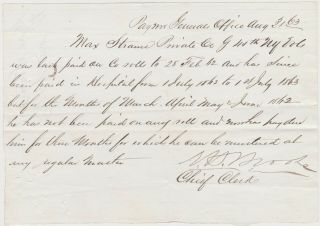 Paymr Generals Office Aug 31, 63
Max Strauss Private Co G 40th NY Vols
was last paid on Co roll to 28 Feb 62 and has since
been paid in Hospital from 1 July 1862 to 1st July 1863
but for the Months of March April May & June 1862
he has not been paid on any roll and pay due
him for those Months for which he can be mustered at
any regular Muster
Chief Clerk